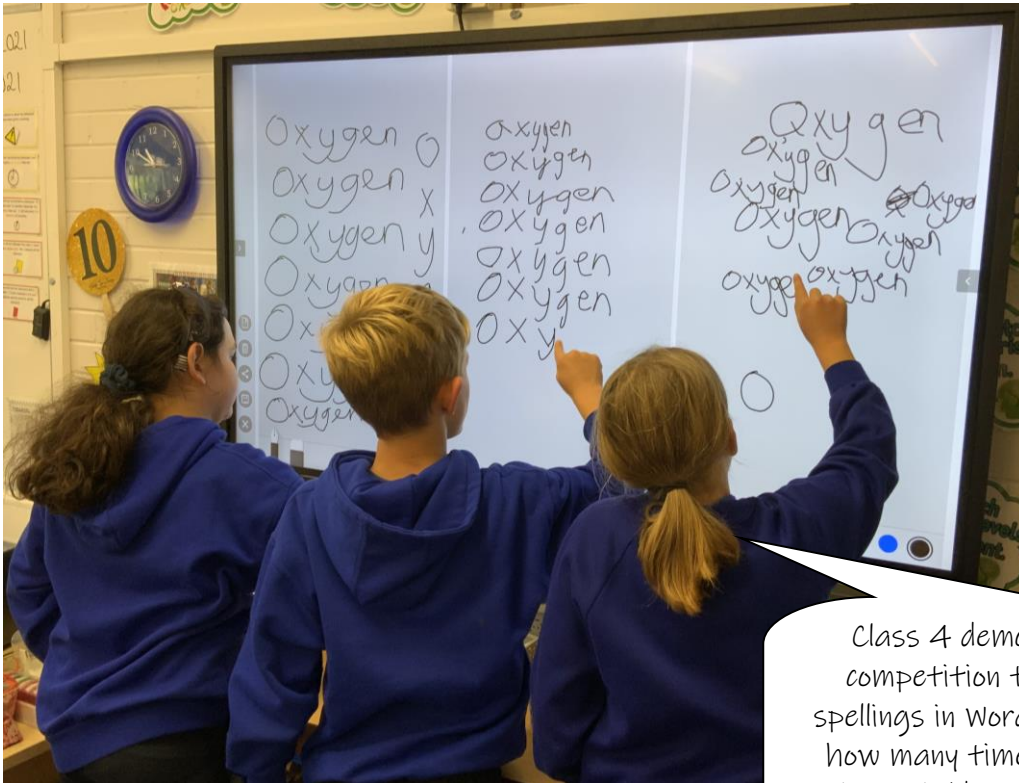 2021
021
10
Oxygen
Oxygen
Oxygen
Oxygen
Ox
Oxy
Oxygen
O
x
y
Oxygen
Oxygen
Oxygen
Oxygen
Oxygen
Oxygen
Oxy
Oxygen
Oxygen
Oxygen
Oxygen
Oxygen
Oxygen
Oxygen
O
Class 4 demo
competition t
spellings in Word
how many time